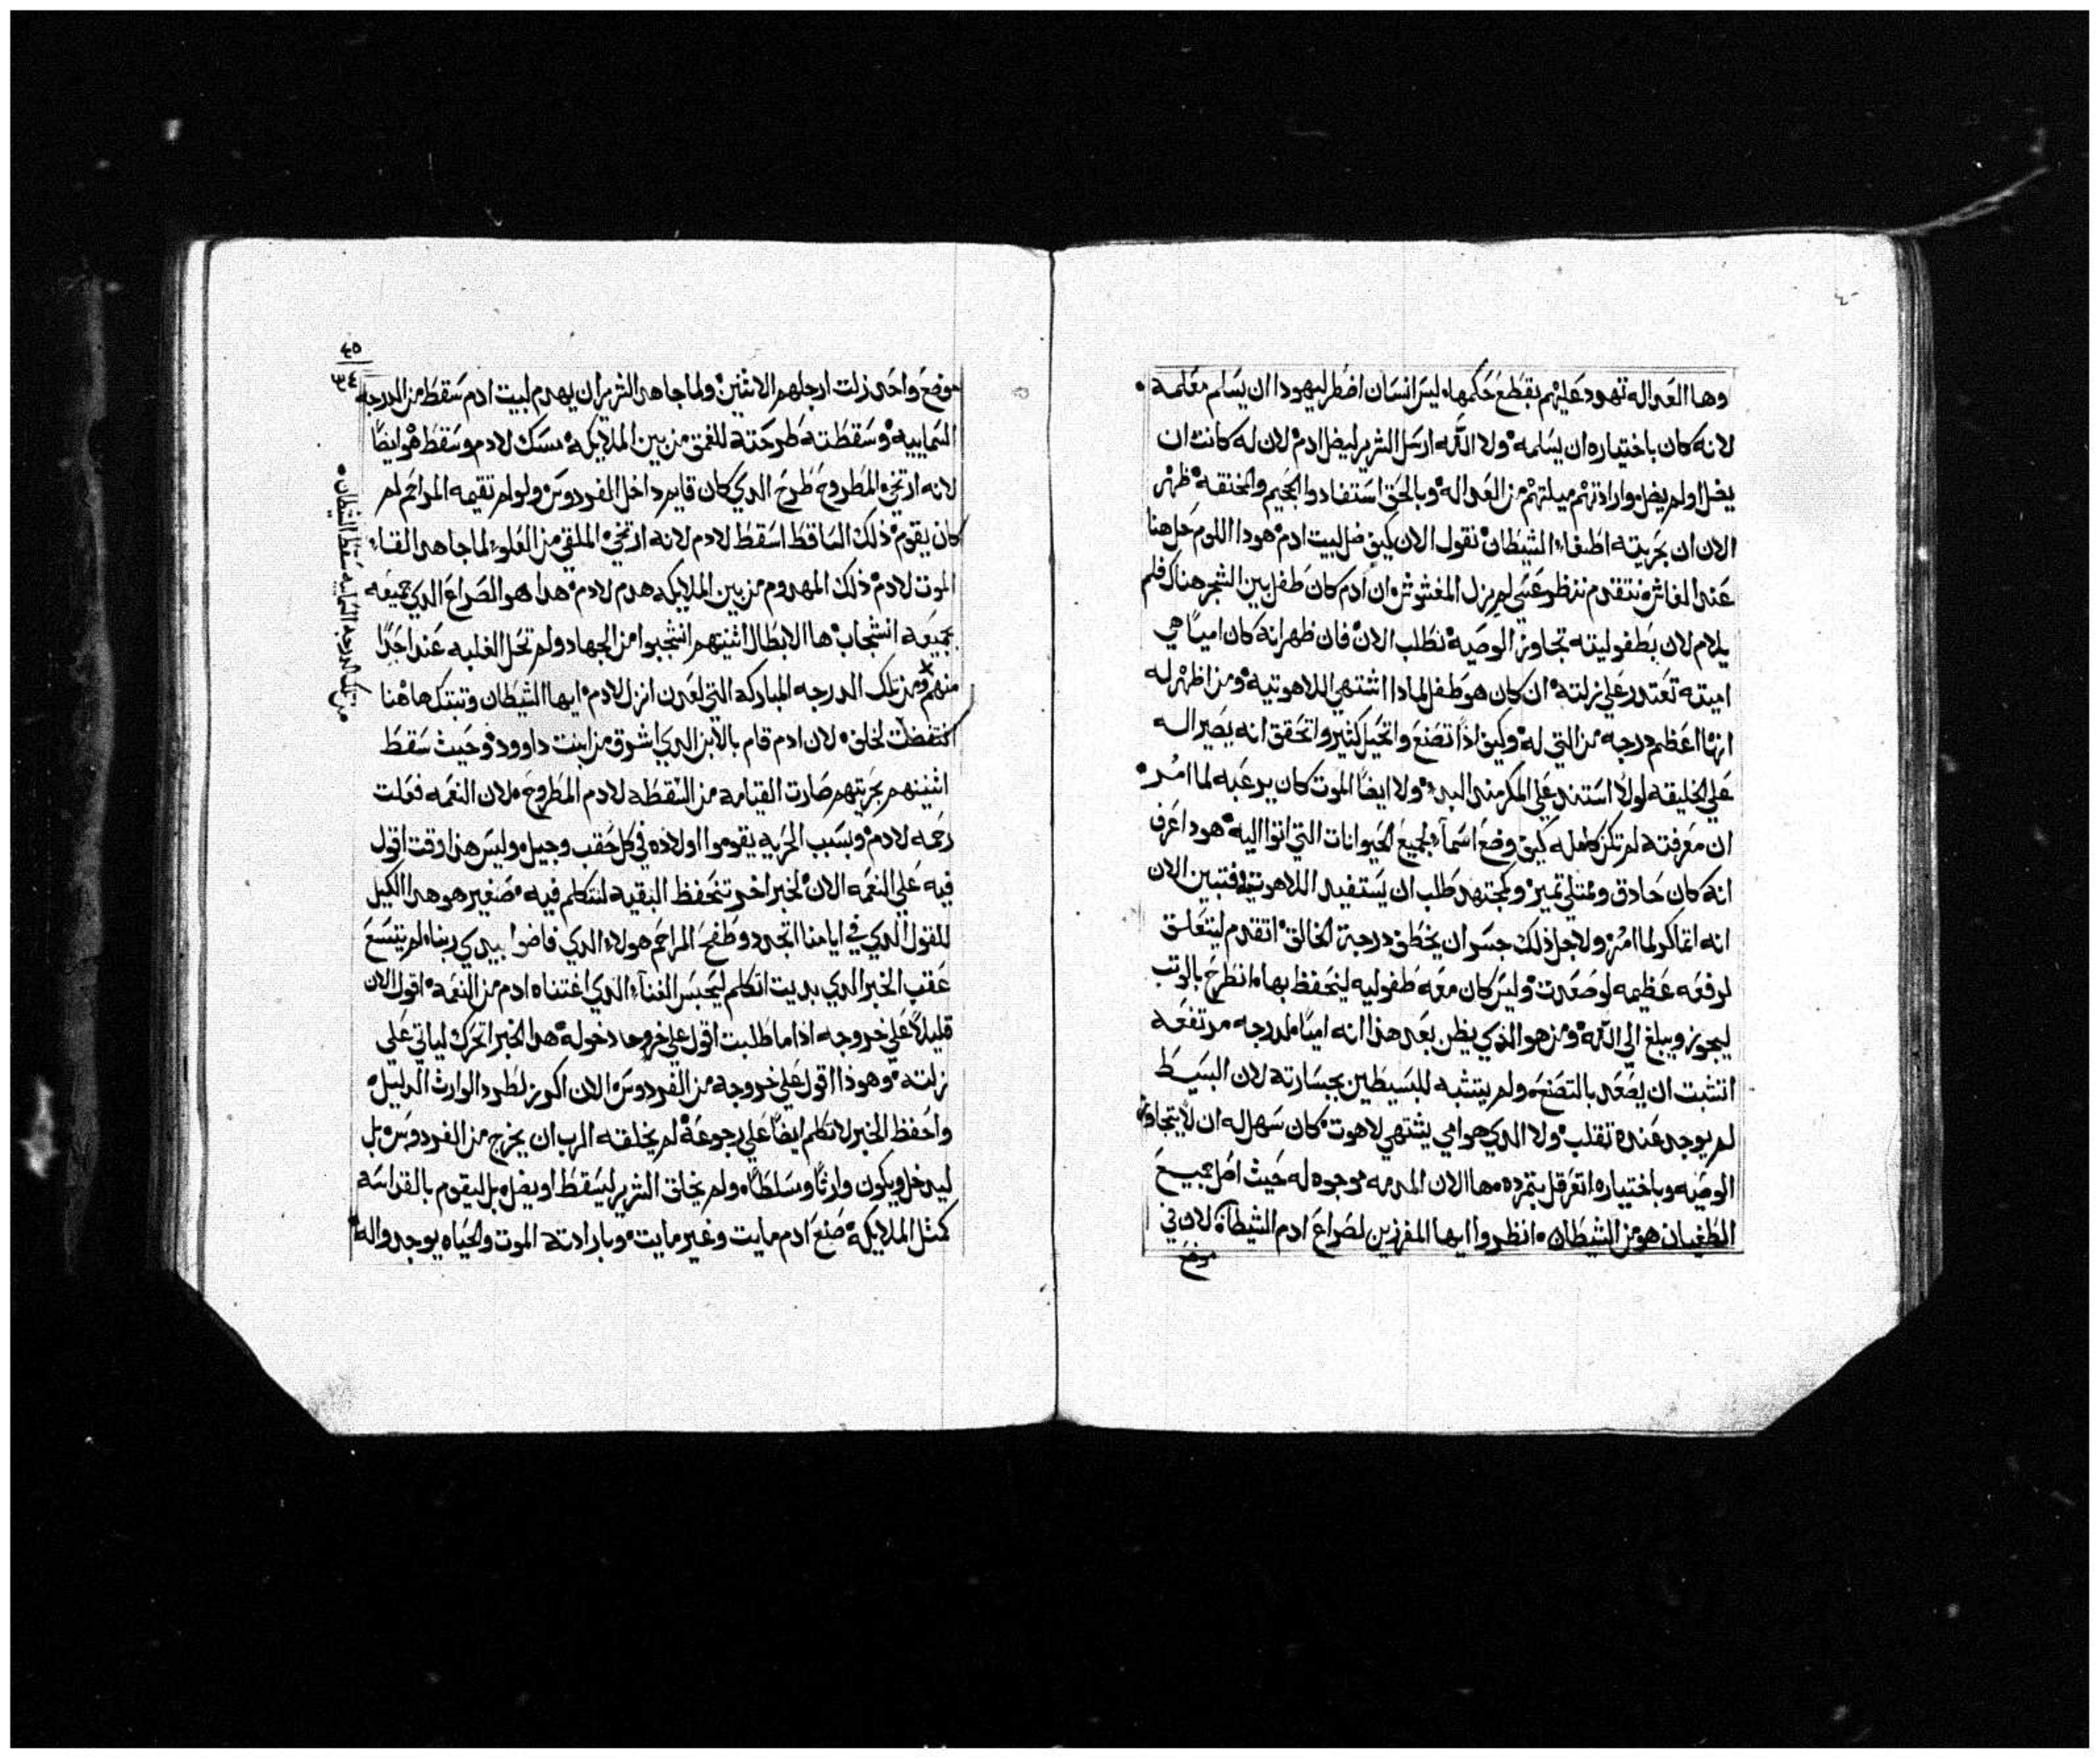 وها العداله تهود عليهم بقطع حكمها، ليس انسان اضطر ليهودا ان يسلم معلمه •
لانه كان باختياره ان يسلمه • ولا الله ارسل الشرير ليضل ادم • لان له كانت ان
يضل او لم يضل، وارادتهم ميلتهم من العداله • وبالحق استفادوا الجحيم والمخنقه • ظهر
الان ان بحريته اطغاه الشيطان • نقول الان كيف ضل لبيت ادم • هودا اللوم حل هنا
عند الغاش، نتقدم ننظر عسى لم يزل المغشوش، ان ادم كان طفل بين الشجر هناك فلم
يلام لان بطفوليته تجاوز الوصيه • نطلب الان • فان ظهر انه كان اميًا هي
اميته تعتدر على زلته • ان كان هو طفل لمادا اشتهى اللاهوتيه • ومن اظهر له
انها اعظم درجه من التي له • وكيف اذًا تصنع واتخيل كثير واتحقق انه يصير اله
على الخليقه لولا استند على المكر مند البدء • ولا ايضًا الموت كان يرعبه لما امر •
ان معرفته لم تكن كامله كيف وضع اسماء لجميع الحيوانات التي اتوا اليه • هودا عرف
انه كان حادق وممتلي تميز • ومجتهد طلب ان يستفيد اللاهوتيه، فتبين الان
انه اتماكر لما امر، ولاجل ذلك جسر ان يخطف درجة الخالق • اتقدم ليتعلق
لرفعه عظيمه لو صعدت • وليس كان معه طفوليه ليتحفظ بها، انطرح بالوتب
ليجوز ويبلغ الي الله • ومن هو الذي يظن بعد هذا انه اميًا، لدرجه مرتفعه
انتشبت ان يصعد بالتصنع، ولم يتشبه للبسيطين بجسارته لان البسيط
لم يوجد عنده تقلب • ولا الدي هو امي يشتهي لاهوت • كان سهل له ان لا يتجاوز
الوصيه وباختياره اتعرقل بتمرده، ها الان المدمه موجوه له حيث اصل جميع
الطغيان هو من الشيطان • انظروا ايها المفرزين لصراع ادم الشيطان، لان في
موضع
٤٥
٣٤
موضع واحد زلت ارجلهم الاثنين • ولما جا هدا الشرير ان يهدم لبيت ادم سقط من الدرجه
السماييه • وسقطته طرحته للغمق من بين الملايكه • مسك لادم وسقط هو ايضًا
لانه ارتخي، المطروح طرح الدي كان قايم داخل الفردوس • ولو لم تقيمه المراحم لم
كان يقوم • ذلك الساقط اسقط لادم لانه ارتخي • الملقى من العلو، لما جا هدا القاء
الموت لادم • ذلك المهدوم من بين الملايكه هدم لادم • هدا هو الصراع الدي جميعه
بجميعه انشجاب • ها الابطال اثنينهم انشجبوا من الجهاد ولم تحل الغلبه عند احدًا
منهم • ومن تلك الدرجه المباركه التي لعدن انزل لادم • ايها الشيطان وتبتك هاهنا
من تلك الدرجه السماييه سقط الشيطان •
اتحفظت لخلق • لان ادم قام بالابن الدي اشرق من ابنت داوود • وحيث سقط
اثنينهم بحريتهم صارت القيامه من السقطه لادم المطروح، لان النعمه فعلت
رحمه لادم • وبسبب الحريه يقوموا اولاده في كل حقب وجيل، وليس هذا وقت اقول
فيه على النعمه الان • لخبر اخر تتحفظ البقيه لنتكلم فيه • صغير هو هدا الكيل
للقول الدي في ايامنا اتجدد وطفح المراحم هولاء الدي فاضوا بيدي ربنا، لم يتسع
عقب الخبر الدي بديت اتكلم ليحبس الغناء الدي اغتناه ادم من النعمه • اقول الان
قليلًا على خروجه اذا ما طلبت اقول على خروجا دخوله • هدا الخبر اتحرك لياتي على
زلته • وهوذا اقول على خروجه من الفردوس الان اكرز لطرد الوارث الدليل •
واحفظ الخبر لاتكلم ايضًا على رجوعه • لم يخلقه الرب ان يخرج من الفردوس، بل
ليدخل ويكون وارثًا وسلطان، ولم يخلق الشرير ليسقط او يضل، بل ليقوم بالقداسه
كمثل الملايكه • صنع ادم مايت وغير مايت • وبارادته الموت والحياه يوجدو اله •